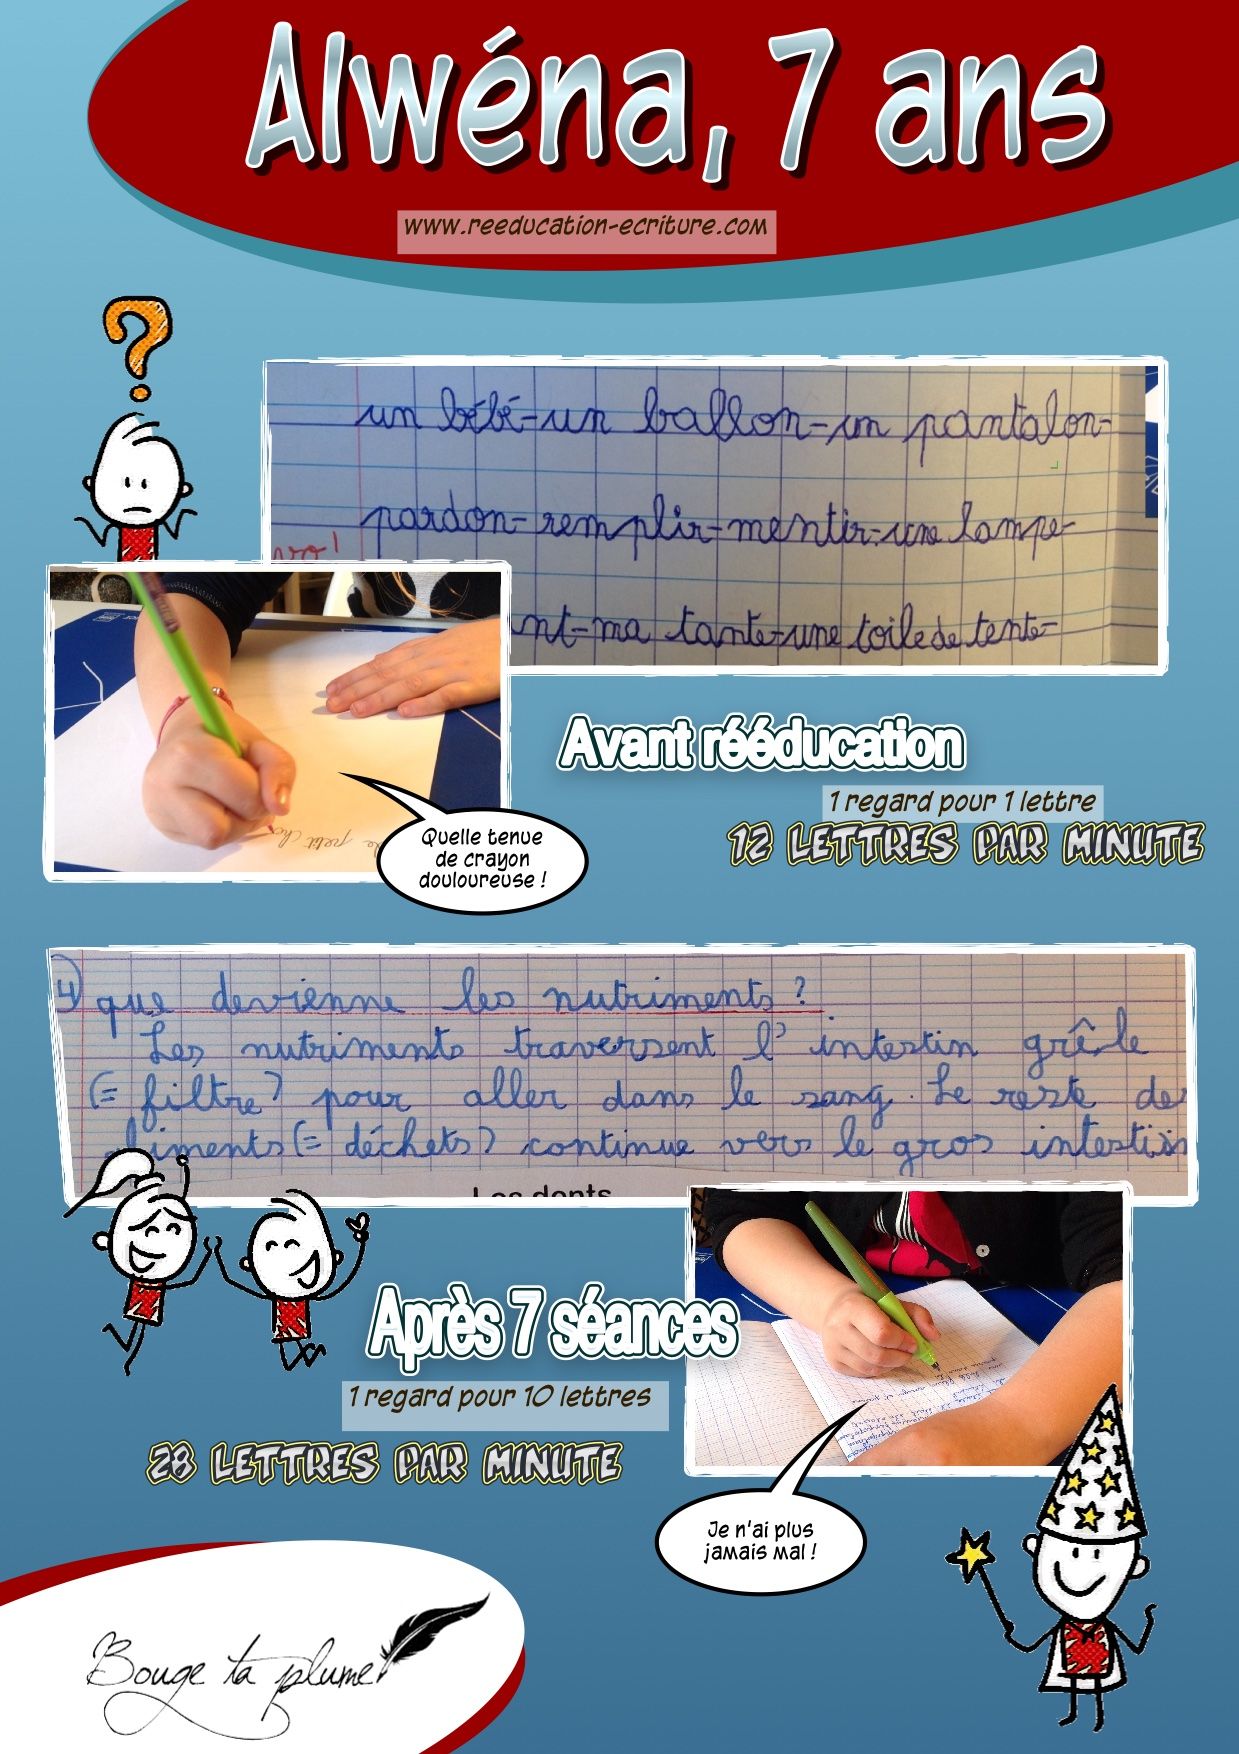 Alwéna, 7 ans
www.reeducation-ecriture.com
un bébé-un ballon-un pantalon-
pardon-remplir-mentir-une lampe-
vo!
nt-ma tante-une toile de tente-
petit cha
Quelle tenue
de crayon
douloureuse !
Avant rééducation
1 regard pour 1 lettre
12 LETTRES PAR MINUTE
4) que devienne les nutriments ?
Les nutriments traversent l'intestin grêle
(= filtre) pour aller dans le sang. Le reste des
aliments (= déchets) continue vers le gros intestin
Les dents
Après 7 séances
1 regard pour 10 lettres
28 LETTRES PAR MINUTE
Je n'ai plus
jamais mal !
Bouge ta plume